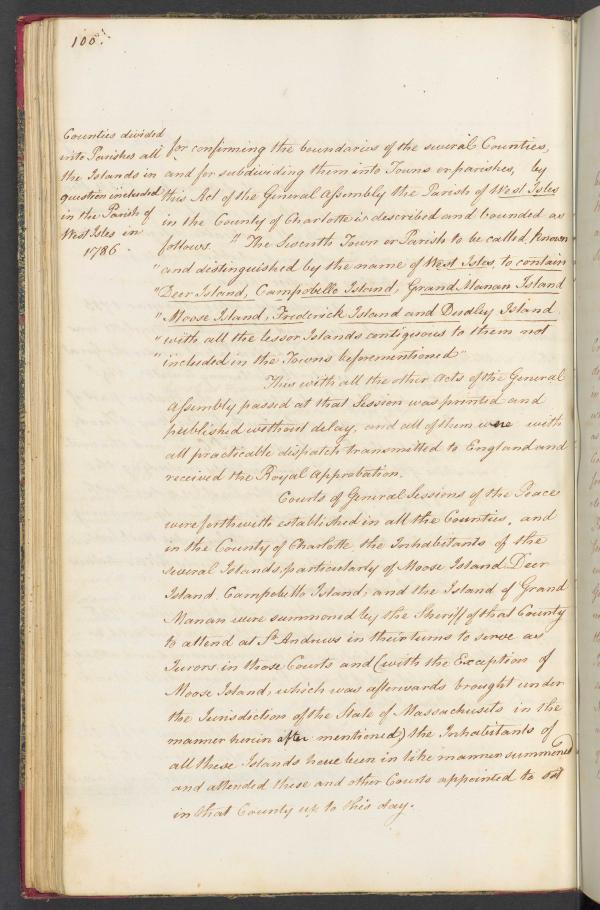 100.
Counties divided
into Parishes all
the Islands in
question included
in the Parish of
West Isles in
1786.
for confirming the boundaries of the several Counties,
and for subdividing them into Towns or parishes, by
this Act of the General Assembly the Parish of West Isles
in the County of Charlotte is described and bounded as
follows. "The Seventh Town or Parish to be called, known
"and distinguished by the name of West Isles, to contain
"Deer Island, Campobello Island, Grand Manan Island
"Moose Island, Frederick Island and Dudley Island
"with all the lesser Islands contiguous to them not
"included in the Towns beforementioned"
This with all the other Acts of the General
Assembly passed at that Session was printed and
published without delay, and all of them were with
all practicable dispatch transmitted to England and
received the Royal Approbation.
Courts of General Sessions of the Peace
were forthwith established in all the Counties, and
in the County of Charlotte the Inhabitants of the
several Islands, particularly of Moose Island Deer
Island Campobello Island, and the Island of Grand
Manan were summoned by the Sheriff of that County
to attend at St Andrews in their turns to serve as
Jurors in those Courts and (with the Exception of
Moose Island, which was afterwards brought under
the Jurisdiction of the State of Massachusets in the
manner herein after mentioned) the Inhabitants of
all these Islands have been in like manner summoned
and attended these and other Courts appointed to sit
in that County up to this day.